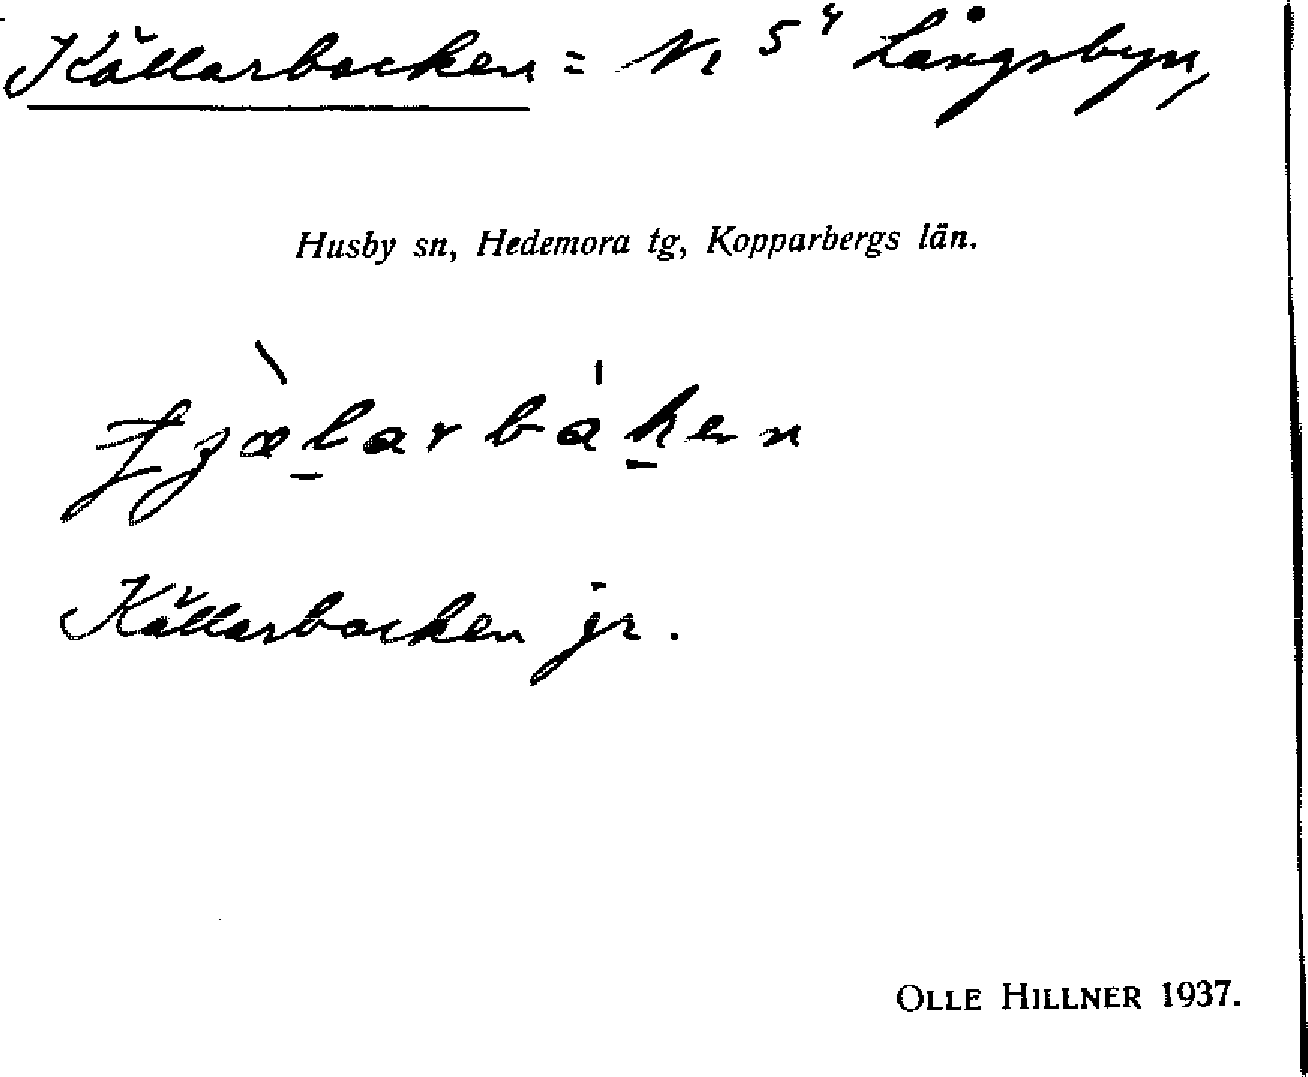 Källarbacken = N 5⁴ Långsbyn,
Husby sn, Hedemora tg, Kopparbergs län.
Källarbacken gr.
OLLE HILLNER 1937.